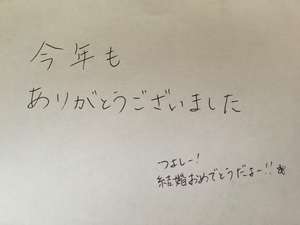 今年も
ありがとうございました
つよしー!
結婚おめでとうだよー!!☆